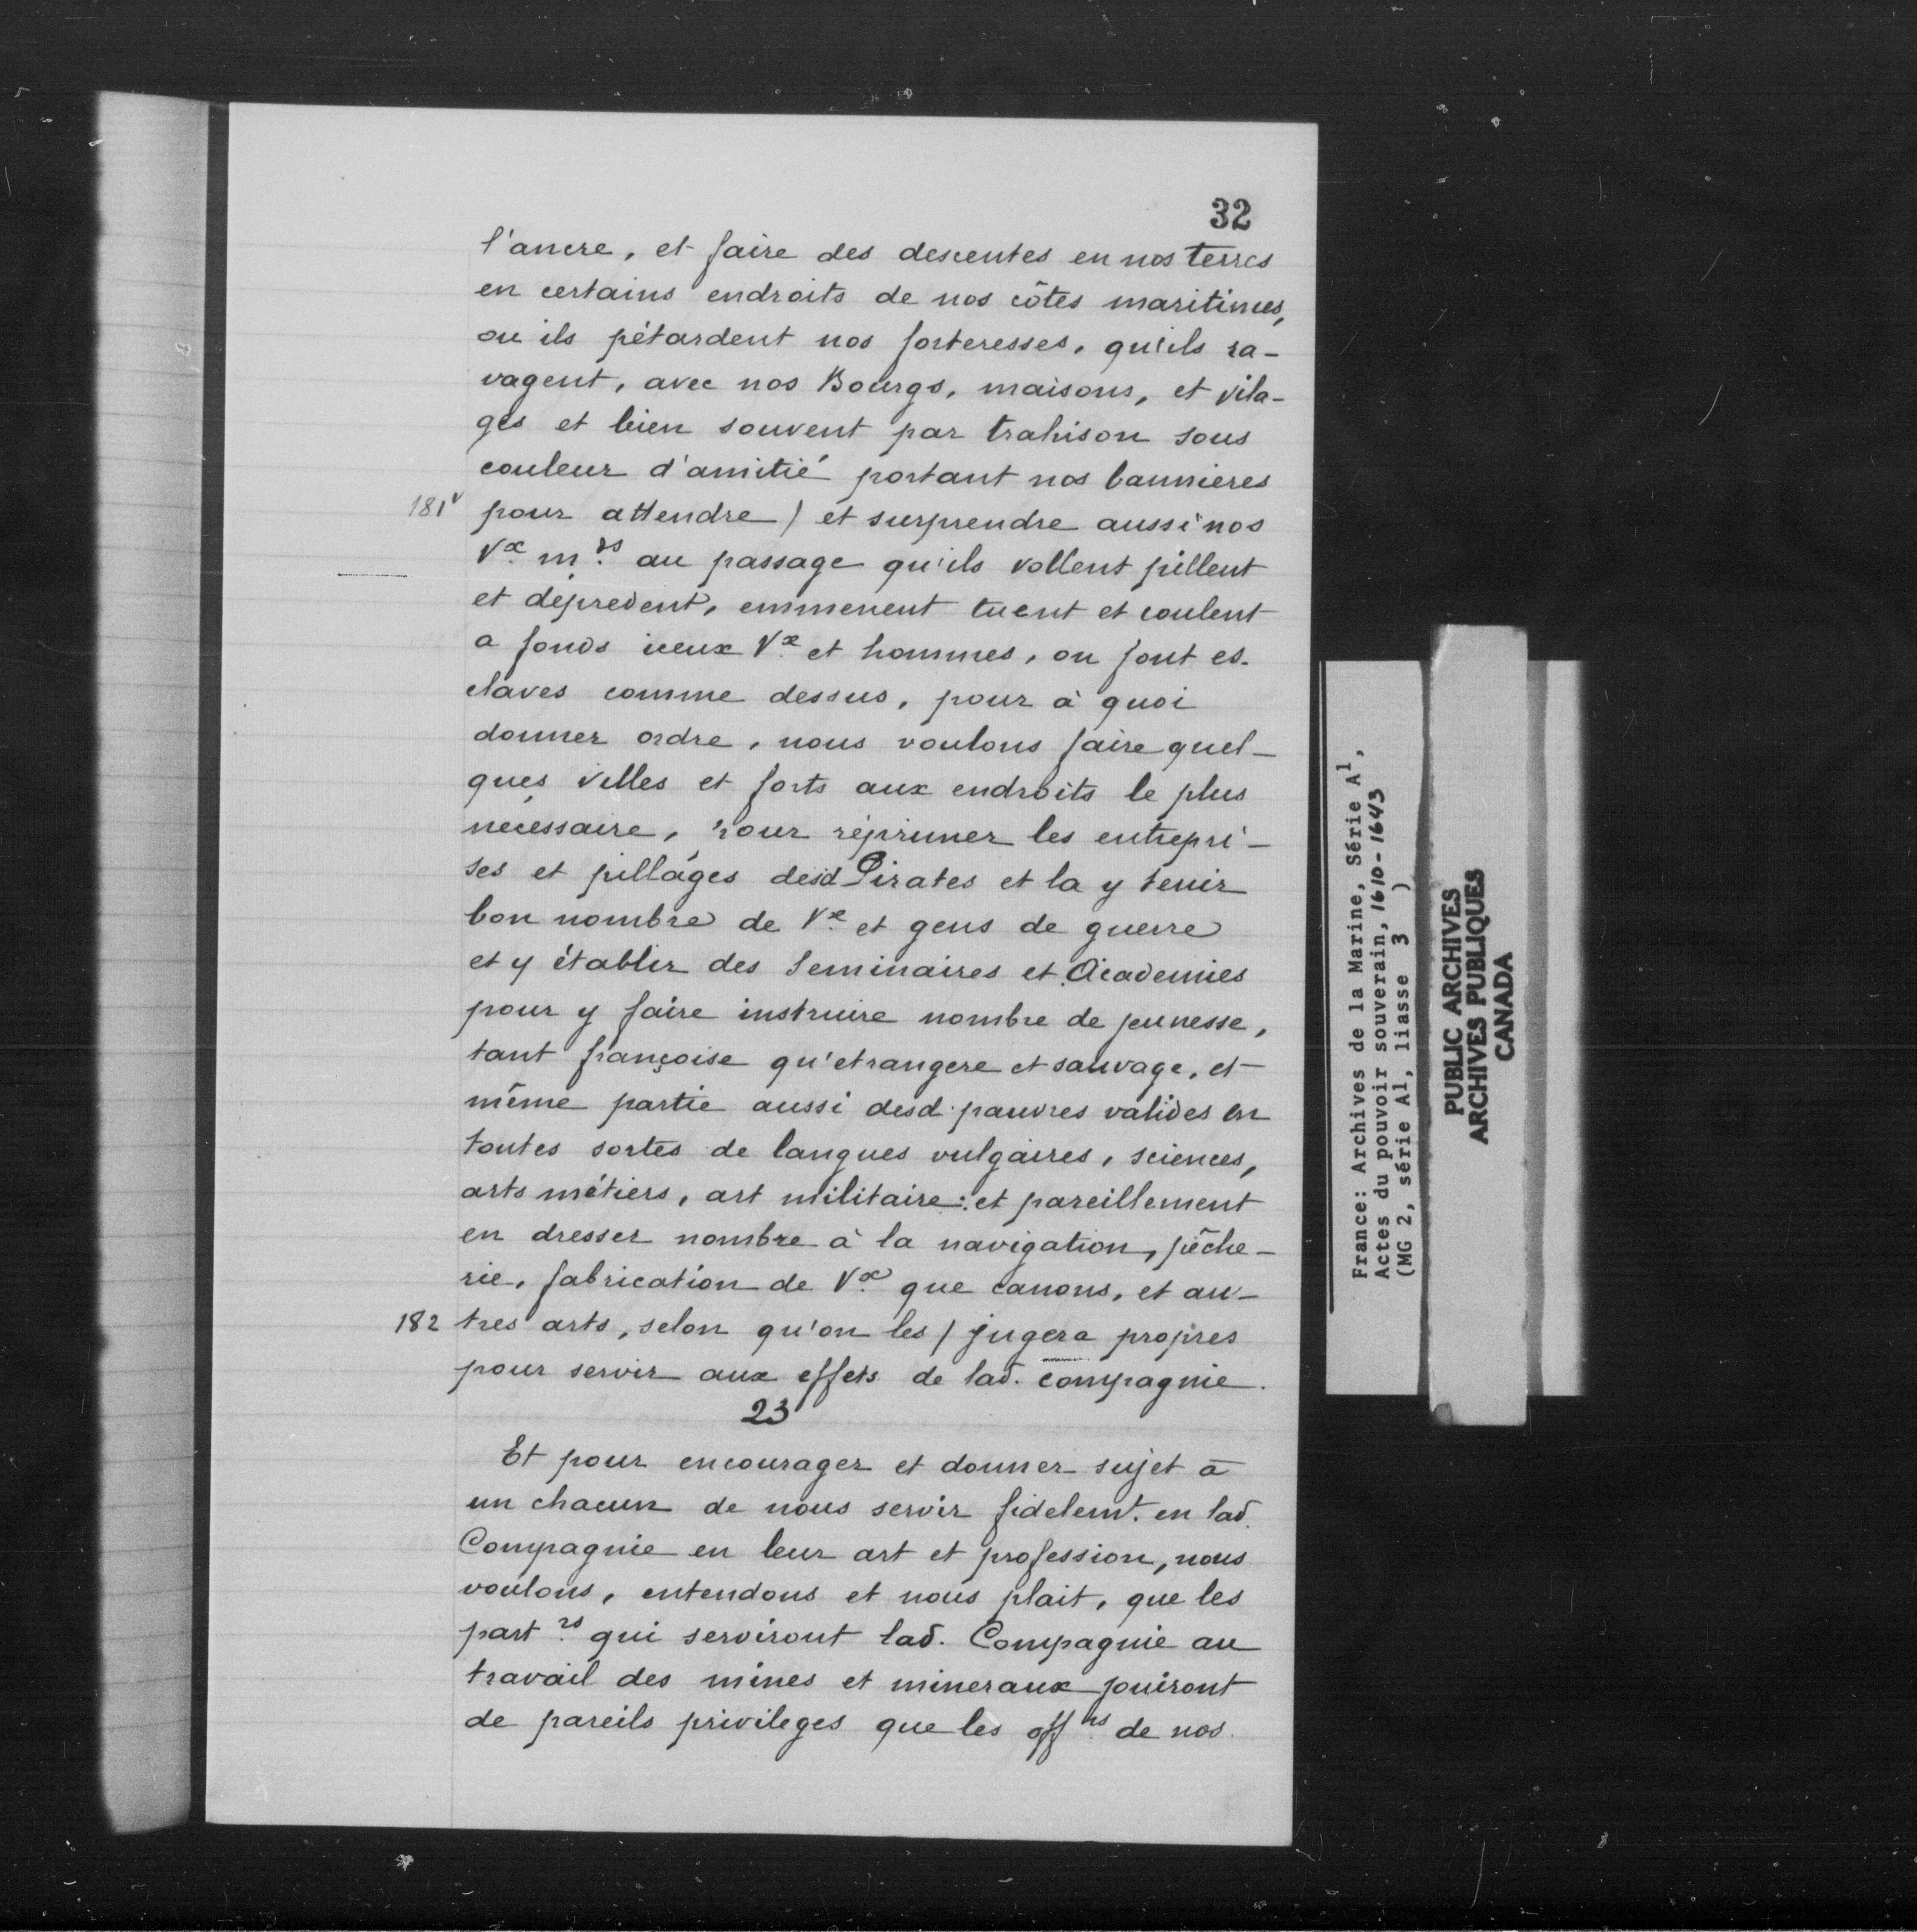 32
l'ancre, et faire des descentes en nos terres
en certains endroits de nos côtes maritimes,
ou ils pétardent nos forteresses, qu'ils ra-
vagent, avec nos Bourgs, maisons, et vila-
ges et bien souvent par trahison sous
couleur d'amitié portant nos bannieres
181v pour attendre / et surprendre aussi nos
Vx. mds. au passage qu'ils vollent pillent
et dépredent, emmenent tuent et coulent
a fonds iceux Vx. et hommes, ou font es-
claves comme dessus, pour à quoi
donner ordre, nous voulons faire quel-
ques villes et forts aux endroits le plus
necessaire, pour réprimer les entrepri-
ses et pillages desd Pirates et la y tenir
bon nombre de Vx. et gens de guerre
et y établir des Seminaires et Academies
pour y faire instruire nombre de jeunesse,
tant françoise qu'etrangere et sauvage, et
même partie aussi desd. pauvres valides en
toutes sortes de langues vulgaires, sciences,
arts métiers, art militaire: et pareillement
en dresser nombre à la navigation, pêche-
rie, fabrication de Vx. que canons, et au-
182 tres arts, selon qu'on les / jugera propres
pour servir aux effets de lad. compagnie.
23
Et pour encourager et donner sujet à
un chacun de nous servir fidelemt. en lad.
Compagnie en leur art et profession, nous
voulons, entendons et nous plait, que les
part.rs qui serviront lad. Compagnie au
travail des mines et mineraux jouiront
de pareils privileges que les off.rs de nos
France: Archives de la Marine, Série A1,
Actes du pouvoir souverain, 1610-1643
(MG 2, série A1, liasse 3 )
PUBLIC ARCHIVES
ARCHIVES PUBLIQUES
CANADA